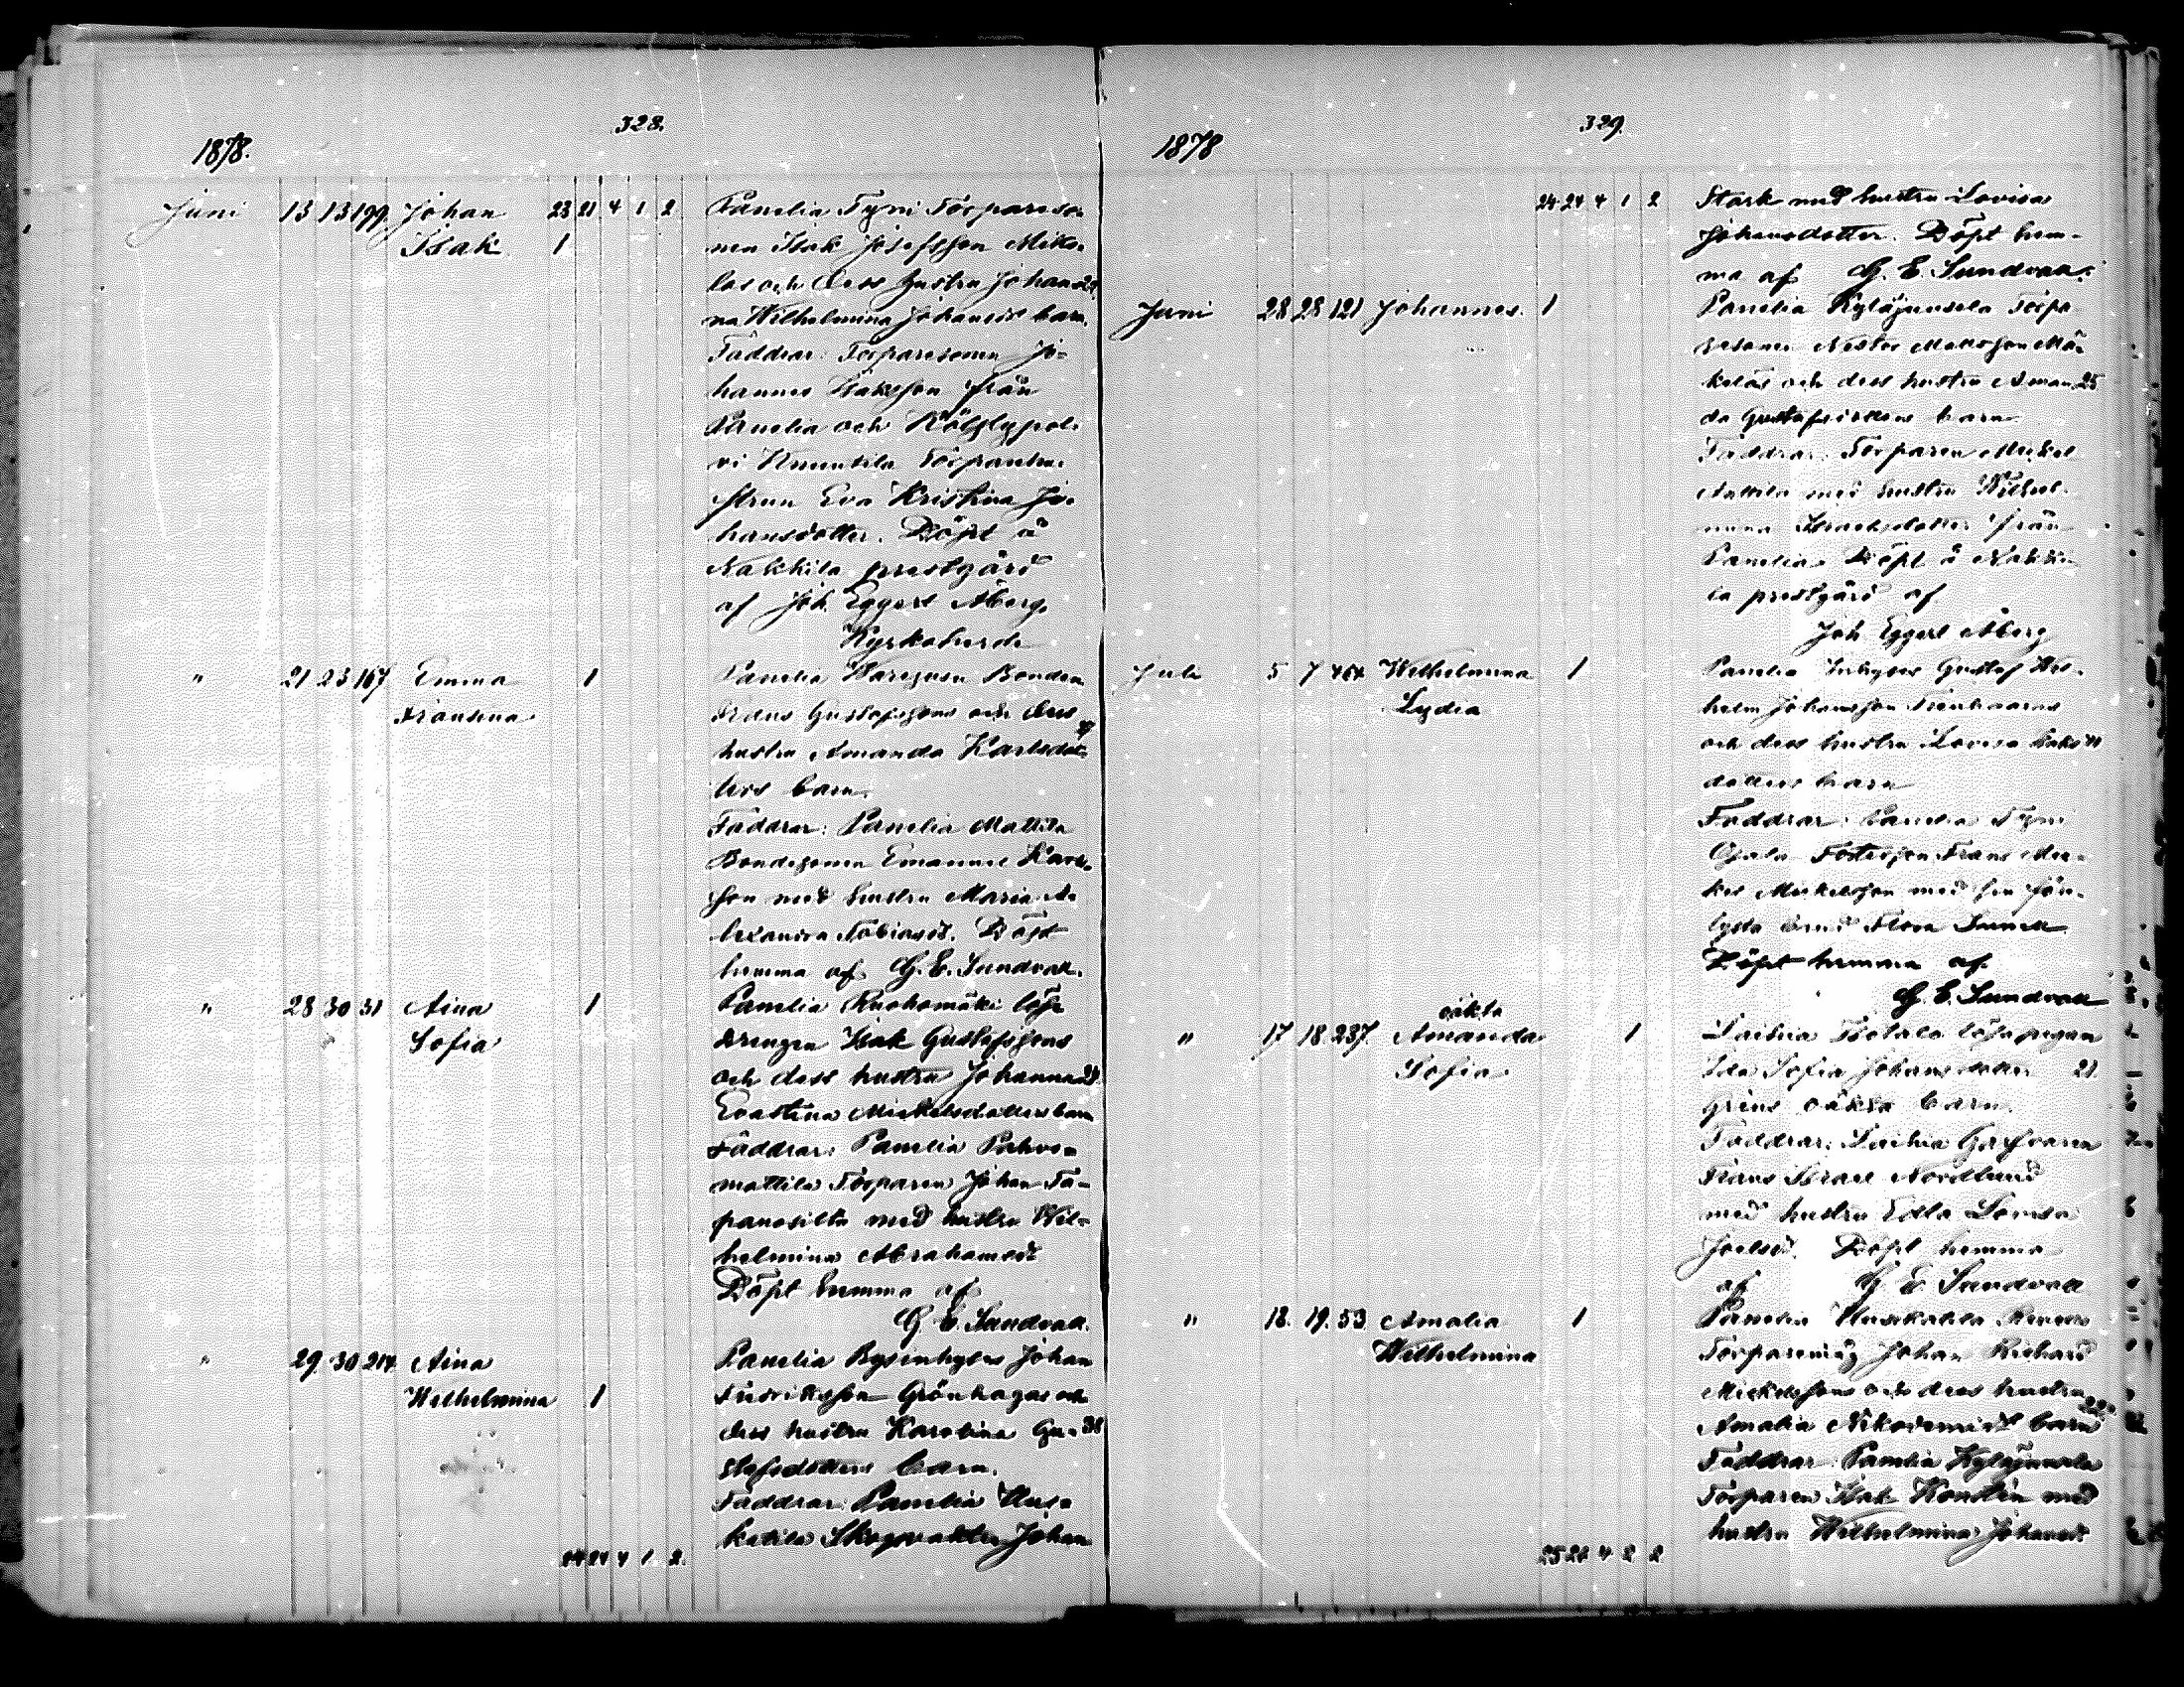 328.
1878.
Juni 13 13 199. Johan 23 21 4 1 2 Panelia Tyni Torpareso-
Isak 1 nen Isak Josefsson Mikko-
las och dess hustru Johan- 29
na Wilhelmina Johansds barn.
Faddrar: Torparesonen Jo-
hannes Isaksson från
Panelia och
vi Knuutila Torparehu-
strun Eva Kristina Jo-
hansdotter. Döpt å
Nakkila prestgård
af Joh. Eggert Åberg.
Kyrkoherde
" 21 23 167 Emma 1 Panelia Bonden
Fransina Frans Gustafssons och dess
hustru Amanda Karlsdot-
ters barn.
Faddrar: Panelia Mattila
Bondesonen Emanuel Karls-
son med hustru Maria A-
lexandra Tobiasd. Döpt
hemma af G. E. Sundvall.
" 28 30 31 Aina 1 Panelia Ruohomäki lösa
Sofia drengen Isak Gustafssons
och dess hustru Johanna 29
Evastina Mickelsdotters barn
Faddrar: Panelia
mattila Torparen Johan Ta-
panosilta med hustru Wil-
helmina Abrahamsd:
Döpt hemma af
G. E. Sundvall.
" 29. 30 214. Aina Panelia Bysinhyses Johan
Wilhelmina 1 Fredriksson Grönhagas och
dess hustru Karolina Gu- 38
stafsdotters barn.
Faddrar: Panelia Uus-
katila Skogvaktar Johan
24 21 4 1 2.
329.
1878
24 21 4 1 2 Stark med hustru Lovisa
Johansdotter. Döpt hem-
ma af G. E. Sundvall.
Juni 28 28 121 Johannes. 1 Panelia Kyläjunsela Torpa
resonen Nestor Mattsson Mä-
keläs och dess hustru Aman- 25
da Gustafsdotters barn
Faddrar: Torparen Mickel
Anttila med hustru Wilhel-
mina Israelsdotter från
Panelia Döpt å Nakki-
la prestgård af
Joh Eggert Åberg
Juli 5 7 Wilhelmina 1 Panelia Inhyses Gustaf Wil-
Lydia helm Johansson
och dess hustru Lovisa Isaks
dotters barn
Faddrar: Panelia Tyni
Ojala Fosterson Frans Mic-
kel Mickelsson med sin för-
lysta brud Flora
Döpt hemma af
G. E. Sundvall
oäkta
" 17 18 237. Amanda 1 Laihia Isotalo lösa pigan
Sofia Ida Sofia Johansdotter 21.
oäkta barn.
Faddrar: Laihia Garfvaren
Frans Israel Nordlund
med hustru Edla Lovisa
Joelsd. Döpt hemma
af G E Sundvall
" 18. 19. 53 Amalia 1 Panelia Uusikatila
Wilhelmina Johan Richard
Mickelssons och dess hustru
Amalia Nikodemid barn 22.
Faddrar: Panelia Kyläjunsela
Torparen Isak Konstin med
hustru Wilhelmina Johansd:
25 21 4 2 2